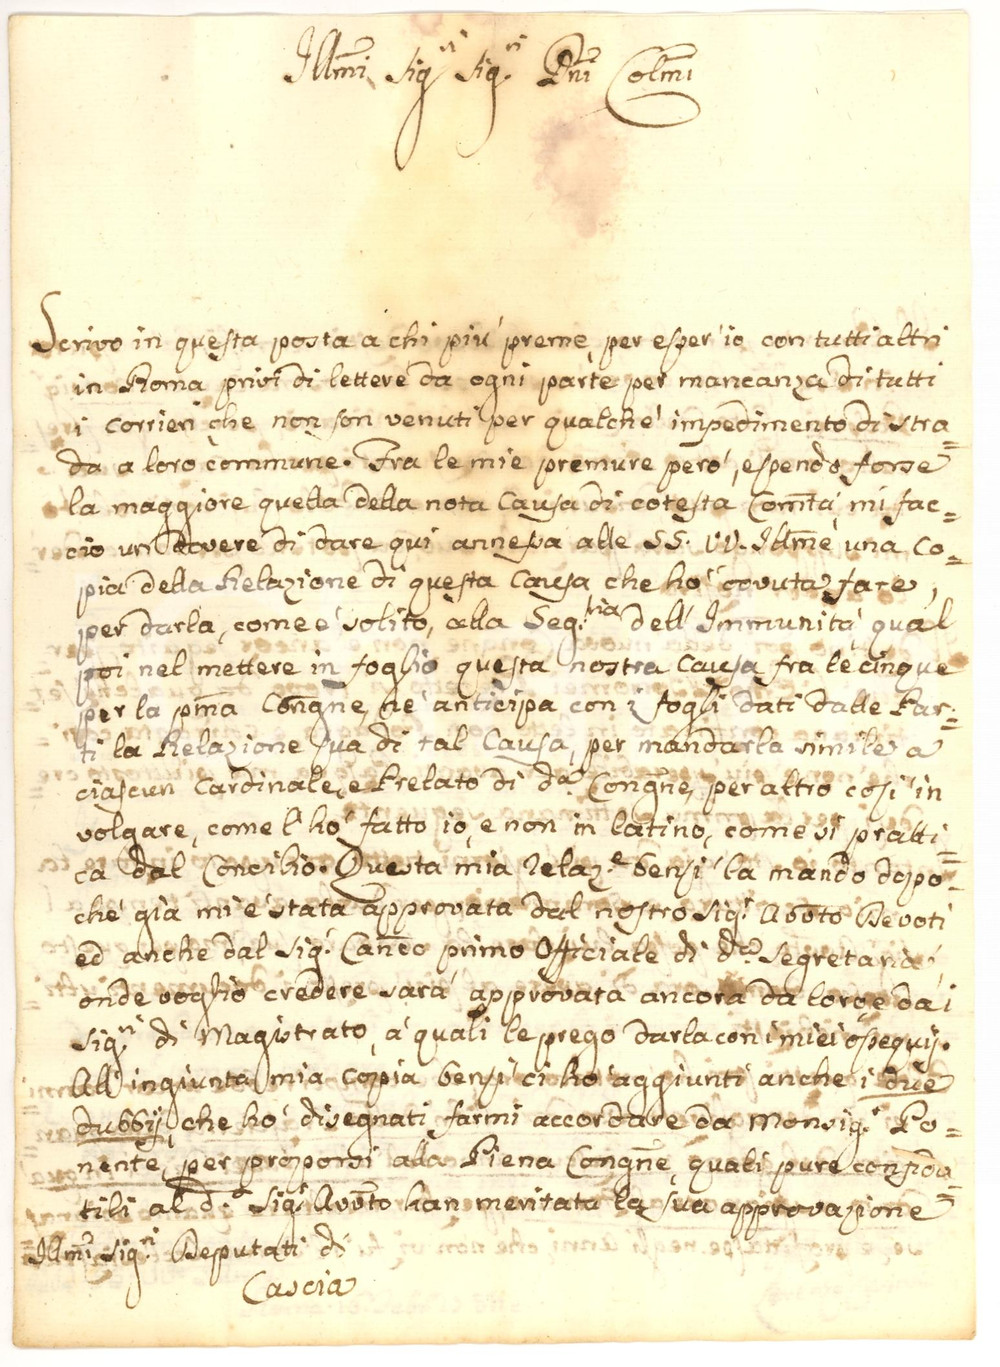 Illmi Sigri Sigri Pni Colmi
Scrivo in questa posta à chi più preme, per esser' io con tutti altri
in Roma privi di lettere da ogni parte per mancanza di tutti
i corrieri che non son venuti per qualche impedimento di stra=
da a loro commune. Fra le mie premure però, essendo forse
la maggiore quella della nota Causa di cotesta Comtà, mi fac=
cio un dovere di dare qui annessa alle SS. VV. Illme una Co=
pia della Relazione di questa Causa che hò dovuta fare,
per darla, come è solito, alla Segria dell' Immunità, qual
poi nel mettere in foglio questa nostra Causa fra le cinque
per la pma Congne, ne anticipa con i fogli dati dalle Par=
ti la Relazione sua di tal Causa, per mandarla simile a
ciascun Cardinale, e Prelato di da Congne, per altro così in
volgare, come l' hò fatto io, e non in latino, come si pratti=
ca dal Concilio. Questa mia relaze bensì la mando dopo=
che già mi è stata approvata dal nostro Sigr Avvto Devoti
ed anche dal Sigr Canco primo Officiale di da Segretaria,
onde voglio credere sarà approvata ancora da loro, e dai
Sigri di Magistrato, a quali le prego darla con i miei ossequij.
All' ingiunta mia copia bensì ci hò aggiunti anche i due
dubbij, che hò disegnati farmi accordare da Monsigr Po=
nente, per proporsi alla Piena Congne, quali pure confida=
tili al do Sigr Avvto han meritata la sua approvazione
Illmi Sigri Deputati di
Cascia